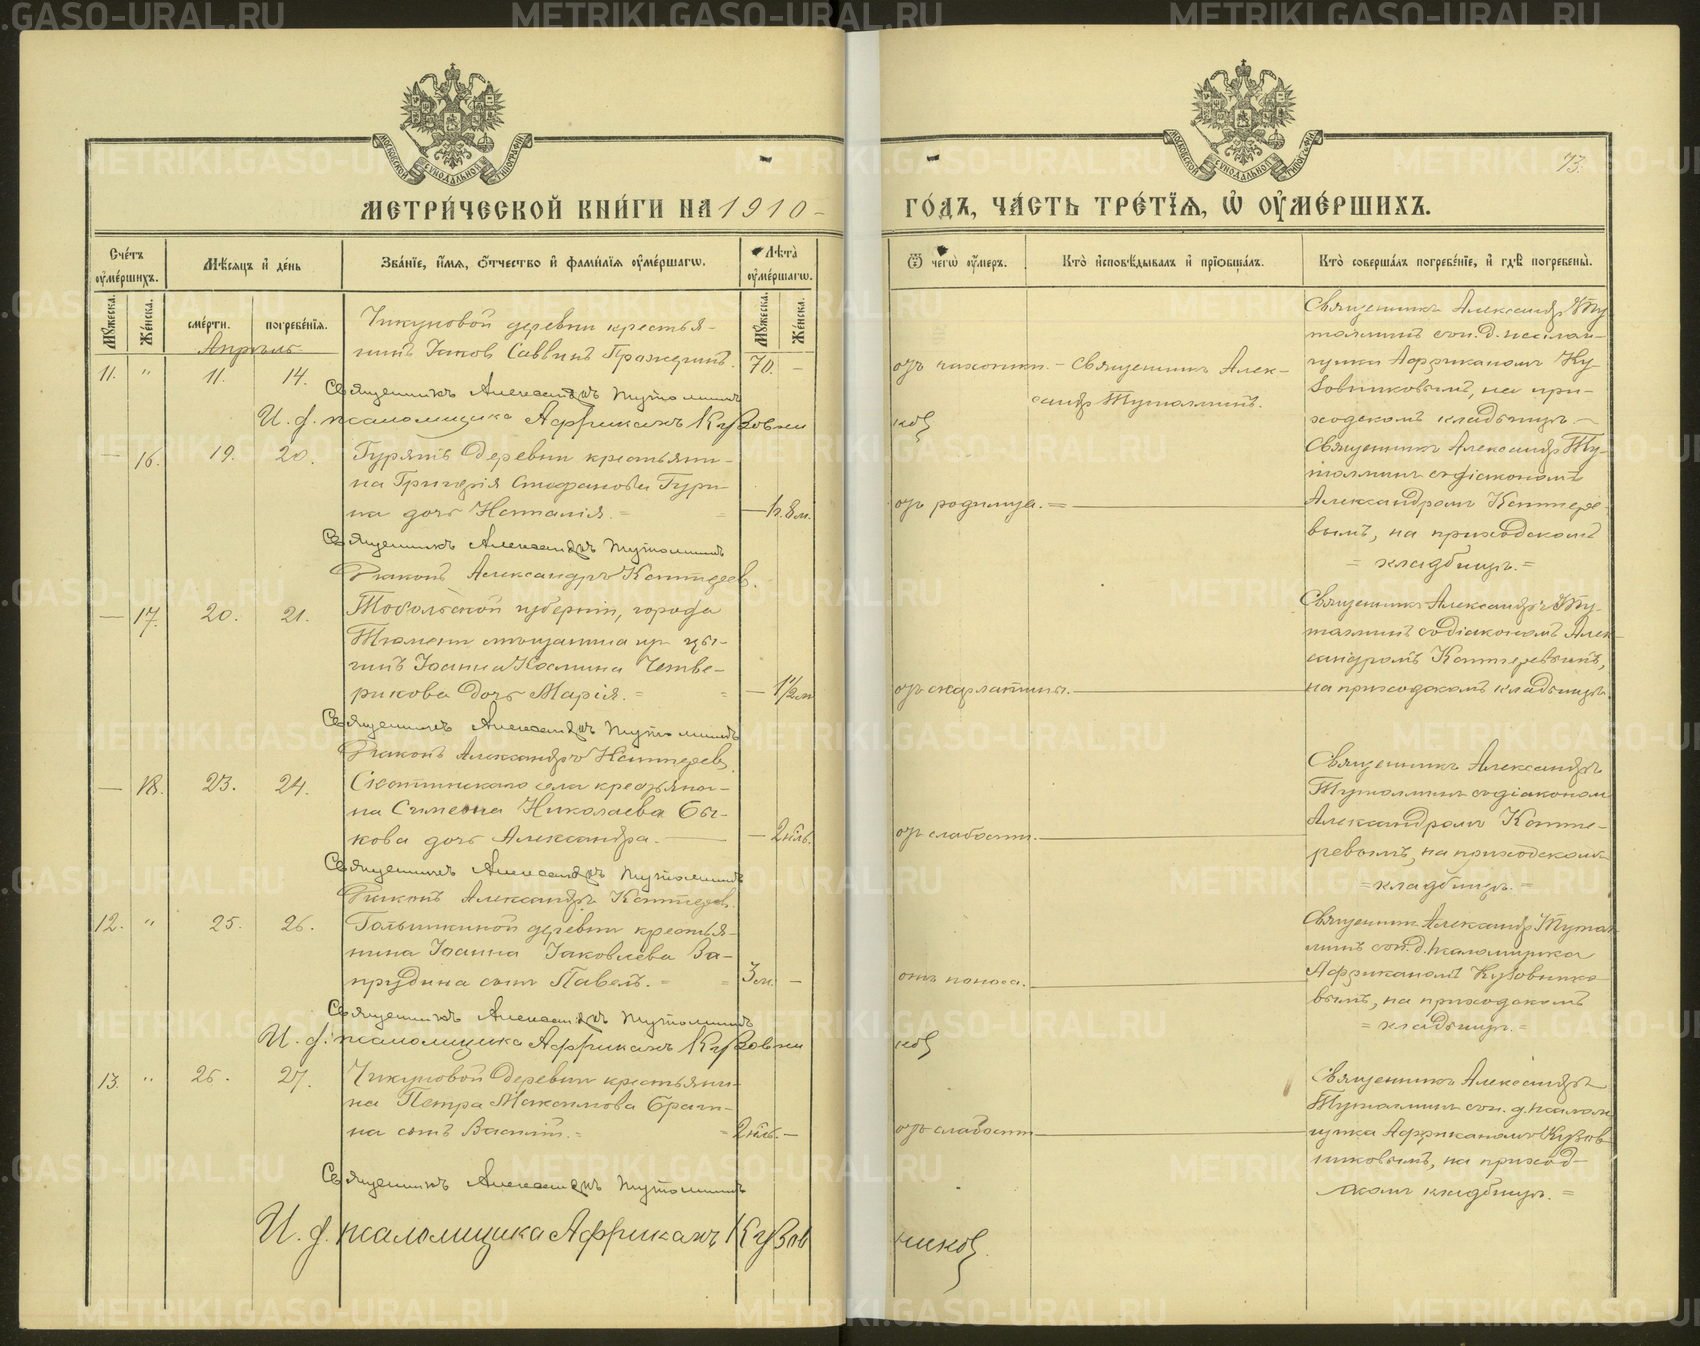 МЕТРИ́ЧЕСКОЙ КНИ́ГИ НА 1910
ГО́ДЪ, ЧА́СТЬ ТРЕ́ТІѦ, Ѡ ОУМЕ́РШИХЪ.
73.
Сче́тъ оуме́ршихъ.
Мѣ́сяцъ и де́нь
Зва́ніе, и́мя, о́тчество и фами́лія оуме́ршагѡ.
Лѣ́та оуме́ршагѡ.
Ѿ чегѡ̀ оу́меръ.
Кто̀ исповѣ́дывалъ и пріѡбща́лъ.
Кто̀ соверша́лъ погребе́ніе, и гдѣ̀ погребены̀.
Му́жеска.
Же́нска.
сме́рти.
погребе́нія.
Му́жеска.
Же́нска.
Апрѣль
11. " 11. 14.
Чикуновой деревни крестья-
нинъ Іаков Саввинъ
70. -
отъ чахотки. - Священникъ Алек-
сандр Тутолминъ.
Священникъ Александръ Ту
толминъ с ои. д. псалом-
щика Африканомъ Ку
зовниковымъ, на при-
ходскомъ кладбищѣ
Священникъ Александръ Тутолминъ
И. д. псаломщика Африканъ Кузовни
ков
- 16. 19. 20.
Деревни крестьяни-
на Григорія Стефанова Гури
на дочь Наталія. =
- 8 м.
отъ родимца. =
Священникъ Александр Ту-
толминъ с діакономъ
Александромъ Коптере-
вымъ, на приходскомъ
= кладбищѣ. =
Священникъ Александръ Тутолминъ
Діаконъ Александръ Коптерев.
- 17. 20. 21.
Тобольской губерніи, города
Тюмени мѣщанина
Іоанна Космина Четве-
рикова дочь Марія. =
- 1½ м
отъ скарлатины.
Священникъ Александръ Ту-
толминъ с діакономъ Алек
сандромъ Коптеревымъ,
на приходскомъ кладбищѣ.
Священникъ Александръ Тутолминъ
Діаконъ Александръ Коптерев
- 18. 23. 24.
Скатинскаго села крестьяни-
на Симеона Николаева Бы-
кова дочь Александра.
- 2 нѣд.
отъ слабости.
Священникъ Александръ
Тутолминъ с діакономъ
Александромъ Копте-
ревымъ, на приходскомъ
= кладбищѣ. =
Священникъ Александръ Тутолминъ
Діаконъ Александръ Коптерев.
12. " 25. 26.
деревни крестья-
нина Іоанна Іаковлева За-
прудина сынъ Павелъ. =
3 м. -
отъ поноса.
Священникъ Александр Тутол
минъ с ои. д. псаломщика
Африканомъ Кузовнико
вымъ, на приходскомъ
= кладбищѣ. =
Священникъ Александръ Тутолминъ
И. д. псаломщика Африканъ Кузовни
ков
13. " 26. 27.
Чикуновой деревни крестьяни-
на Петра Максимова Браги-
на сынъ Василій. =
2 нѣд. -
отъ слабости
Священникъ Александръ
Тутолминъ с ои. д. псалом
щика Африканомъ Кузов
никовымъ, на приход-
скомъ кладбищѣ. =
Священникъ Александръ Тутолминъ
И. д. псаломщика Африканъ Кузов
ников.